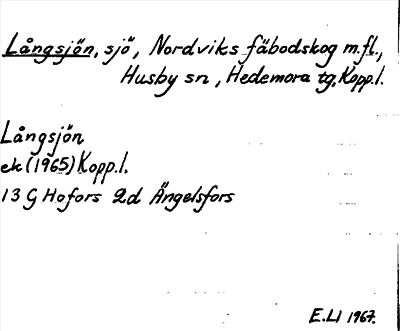 Långsjön, sjö, Nordviks fäbodskog m.fl.,
Husby sn, Hedemora tg, Kopp.l.
Långsjön
ek (1965) Kopp.l.
13 G Hofors 2d Ängelsfors
E.LI 1967.